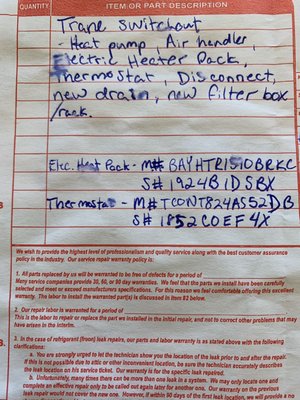 QUANTITY
ITEM OR PART DESCRIPTION
Trane switchout
- Heat pump, Air handler,
Electric Heater Pack,
Thermostat, Disconnect,
new drain, new filter box
/rack.
Elec. Heat Pack - M# BAYHTR1510BRKC
S# 1924B1DSBX
Thermostat - M# TCONT824AS52DB
S# 1852C0EF4X
We wish to provide the highest level of professionalism and quality service along with the best customer assurance
policy in the industry. Our service repair warranty policy is:
1. All parts replaced by us will be warranted to be free of defects for a period of
Many service companies provide 30, 60, or 90 day warranties. We feel that the parts we install have been carefully
selected and meet or exceed manufacturers specifications. For this reason we feel comfortable offering this excellent
warranty. The labor to install the warranted part(s) is discussed in Item #2 below.
2. Our repair labor is warranted for a period of
This is the labor to repair or replace the part we installed in the initial repair, and not to correct other problems that may
have arisen in the interim.
3. In the case of refrigerant (freon) leak repairs, our parts and labor warranty is as stated above with the following
clarifications:
a. You are strongly urged to let the technician show you the location of the leak prior to and after the repair.
If this is not possible due to attic or other inconvenient location, be sure the technician accurately describes
the leak location on his service ticket. Our warranty is for the specific leak repaired.
b. Unfortunately, many times there can be more than one leak in a system. We may only locate one and
complete an effective repair only to be called out again later for another one. Our warranty on the previous
leak repair would not cover the new one. However, if within 90 days of the first leak location, we will provide a no